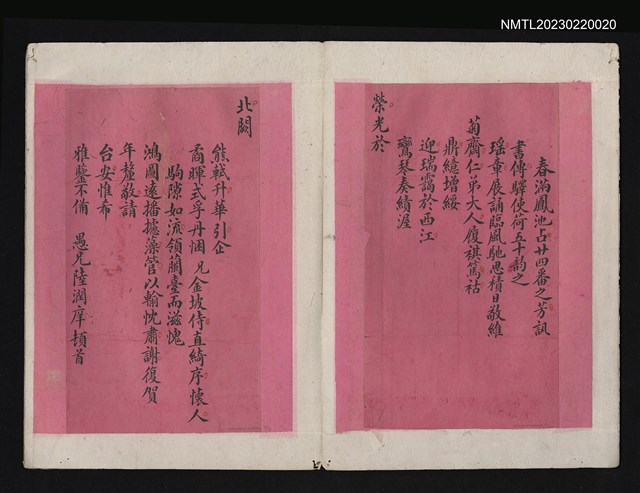 NMTL20230220020
春滿鳳池占廿四番之芳訊
書傳驛使荷五十韵之
瑤章展誦臨風馳思積日敬維
菊齋仁弟大人履祺篤祜
鼎繶增綏
迎瑞靄於西江
鸞琴奏績渥
榮光於
北闕
熊軾升華引企
矞暉式孚丹悃 兄金坡侍直綺序懷人
駒隙如流領蘭臺而滋愧
鴻圖遠播摅藻管以輸忱肅謝復賀
年釐敬請
台安惟希
雅鑒不備 愚兄陸潤庠頓首